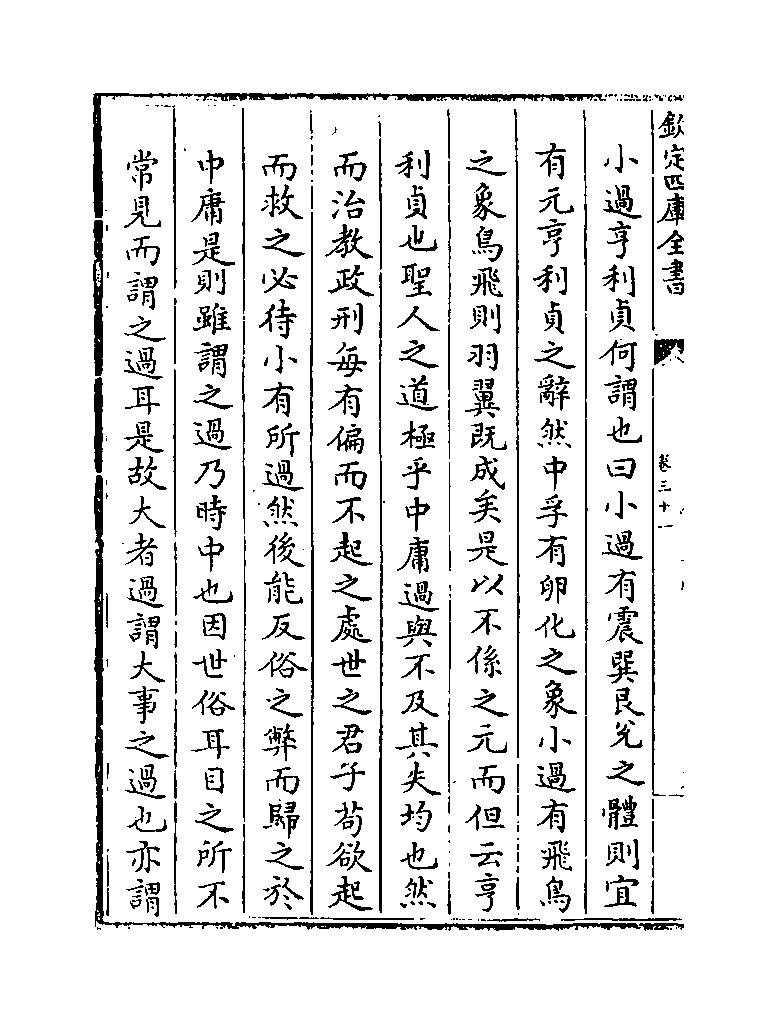 欽定四庫全書
卷三十一
小過亨利貞何謂也曰小過有震巽艮兌之體則宜
有元亨利貞之辭然中孚有卵化之象小過有飛鳥
之象鳥飛則羽翼既成矣是以不係之元而但云亨
利貞也聖人之道極乎中庸過與不及其失均也然
而治教政刑每有偏而不起之處世之君子茍欲起
而救之必待小有所過然後能反俗之弊而歸之於
中庸是則雖謂之過乃時中也因世俗耳目之所不
常見而謂之過耳是故大者過謂大事之過也亦謂